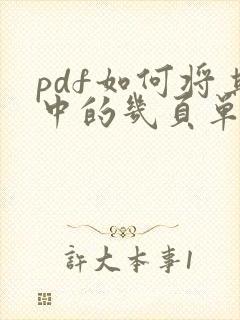 pdf如何将其
中的幾頁單
許大本事1